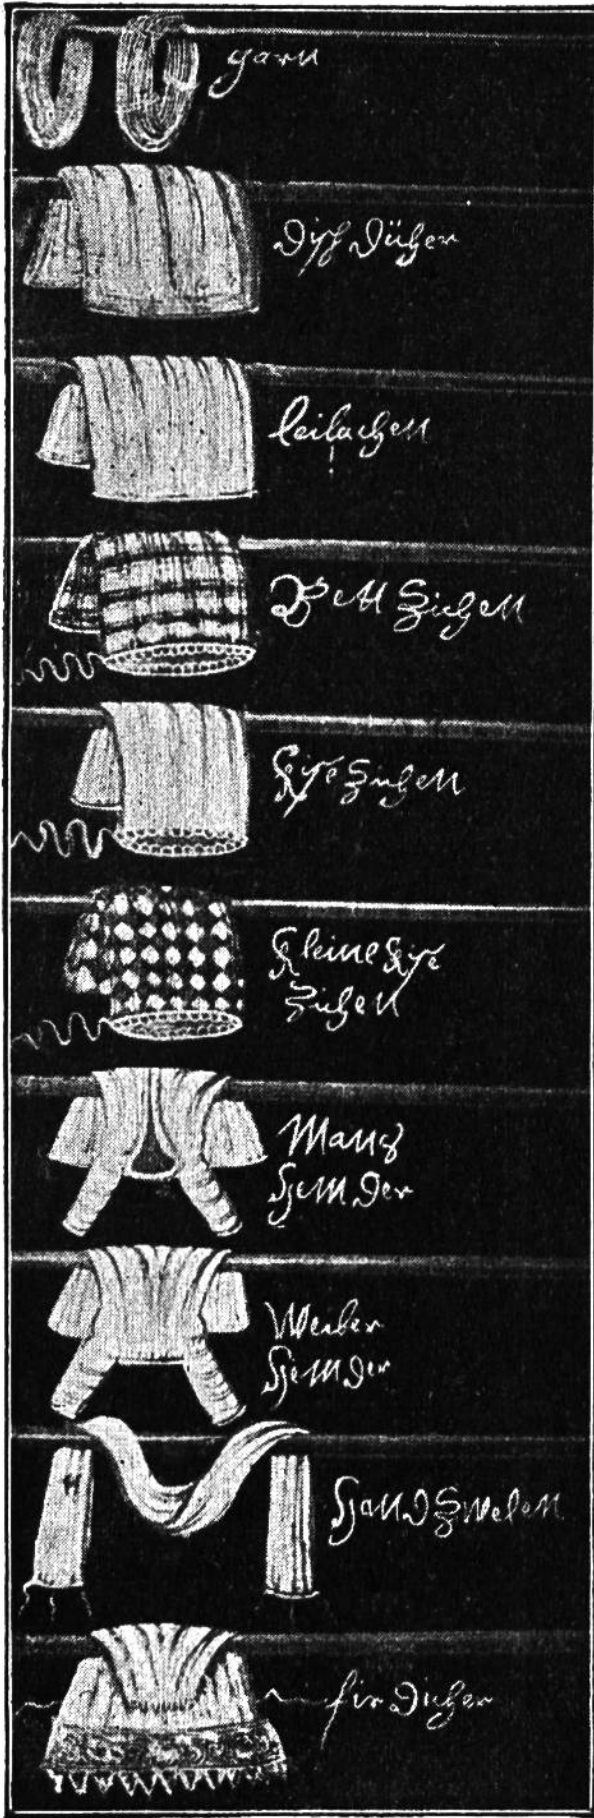 garn
Disch Dücher
leilachen
Bett Ziechen
Kisse Ziechen
Kleine Kisse
Ziechen
Mans
Hemder
Weiber
Hemder
Hand Zwelen
fir Dücher